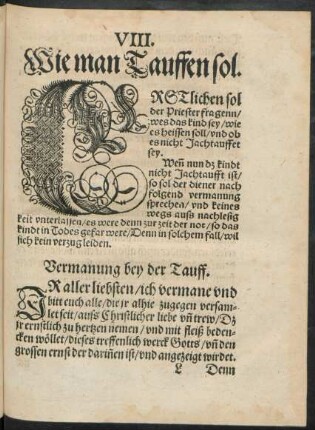 VIII.
Wie man Tauffen sol.
ERSTlichen sol
der Priester fragenn/
wes das kind sey/wie
es heissen soll/vnd ob
es nicht Jachtauffet
sey.
Weñ nun dz kindt
nicht Jachtaufft ist/
so sol der diener nach
folgend vermanung
sprechen/vnd keines
wegs auß nachlessig
keit vnterlassen/es were denn zur zeit der not/so das
kindt in Todes gefar were/Denn in solchem fall/wil
sich kein verzug leiden.
Vermanung bey der Tauff.
IR aller liebsten/ich vermane vnd
bitt euch alle/die jr alhie zugegen versam-
let seit/auß Christlicher liebe vñ trew/Dz
jr ernstlich zu hertzen nemen/vnd mit fleiß beden-
cken wöllet/dieses treffenlich werck Gotts/vñ den
grossen ernst der dariñen ist/vnd angezeigt wirdet.
L Denn